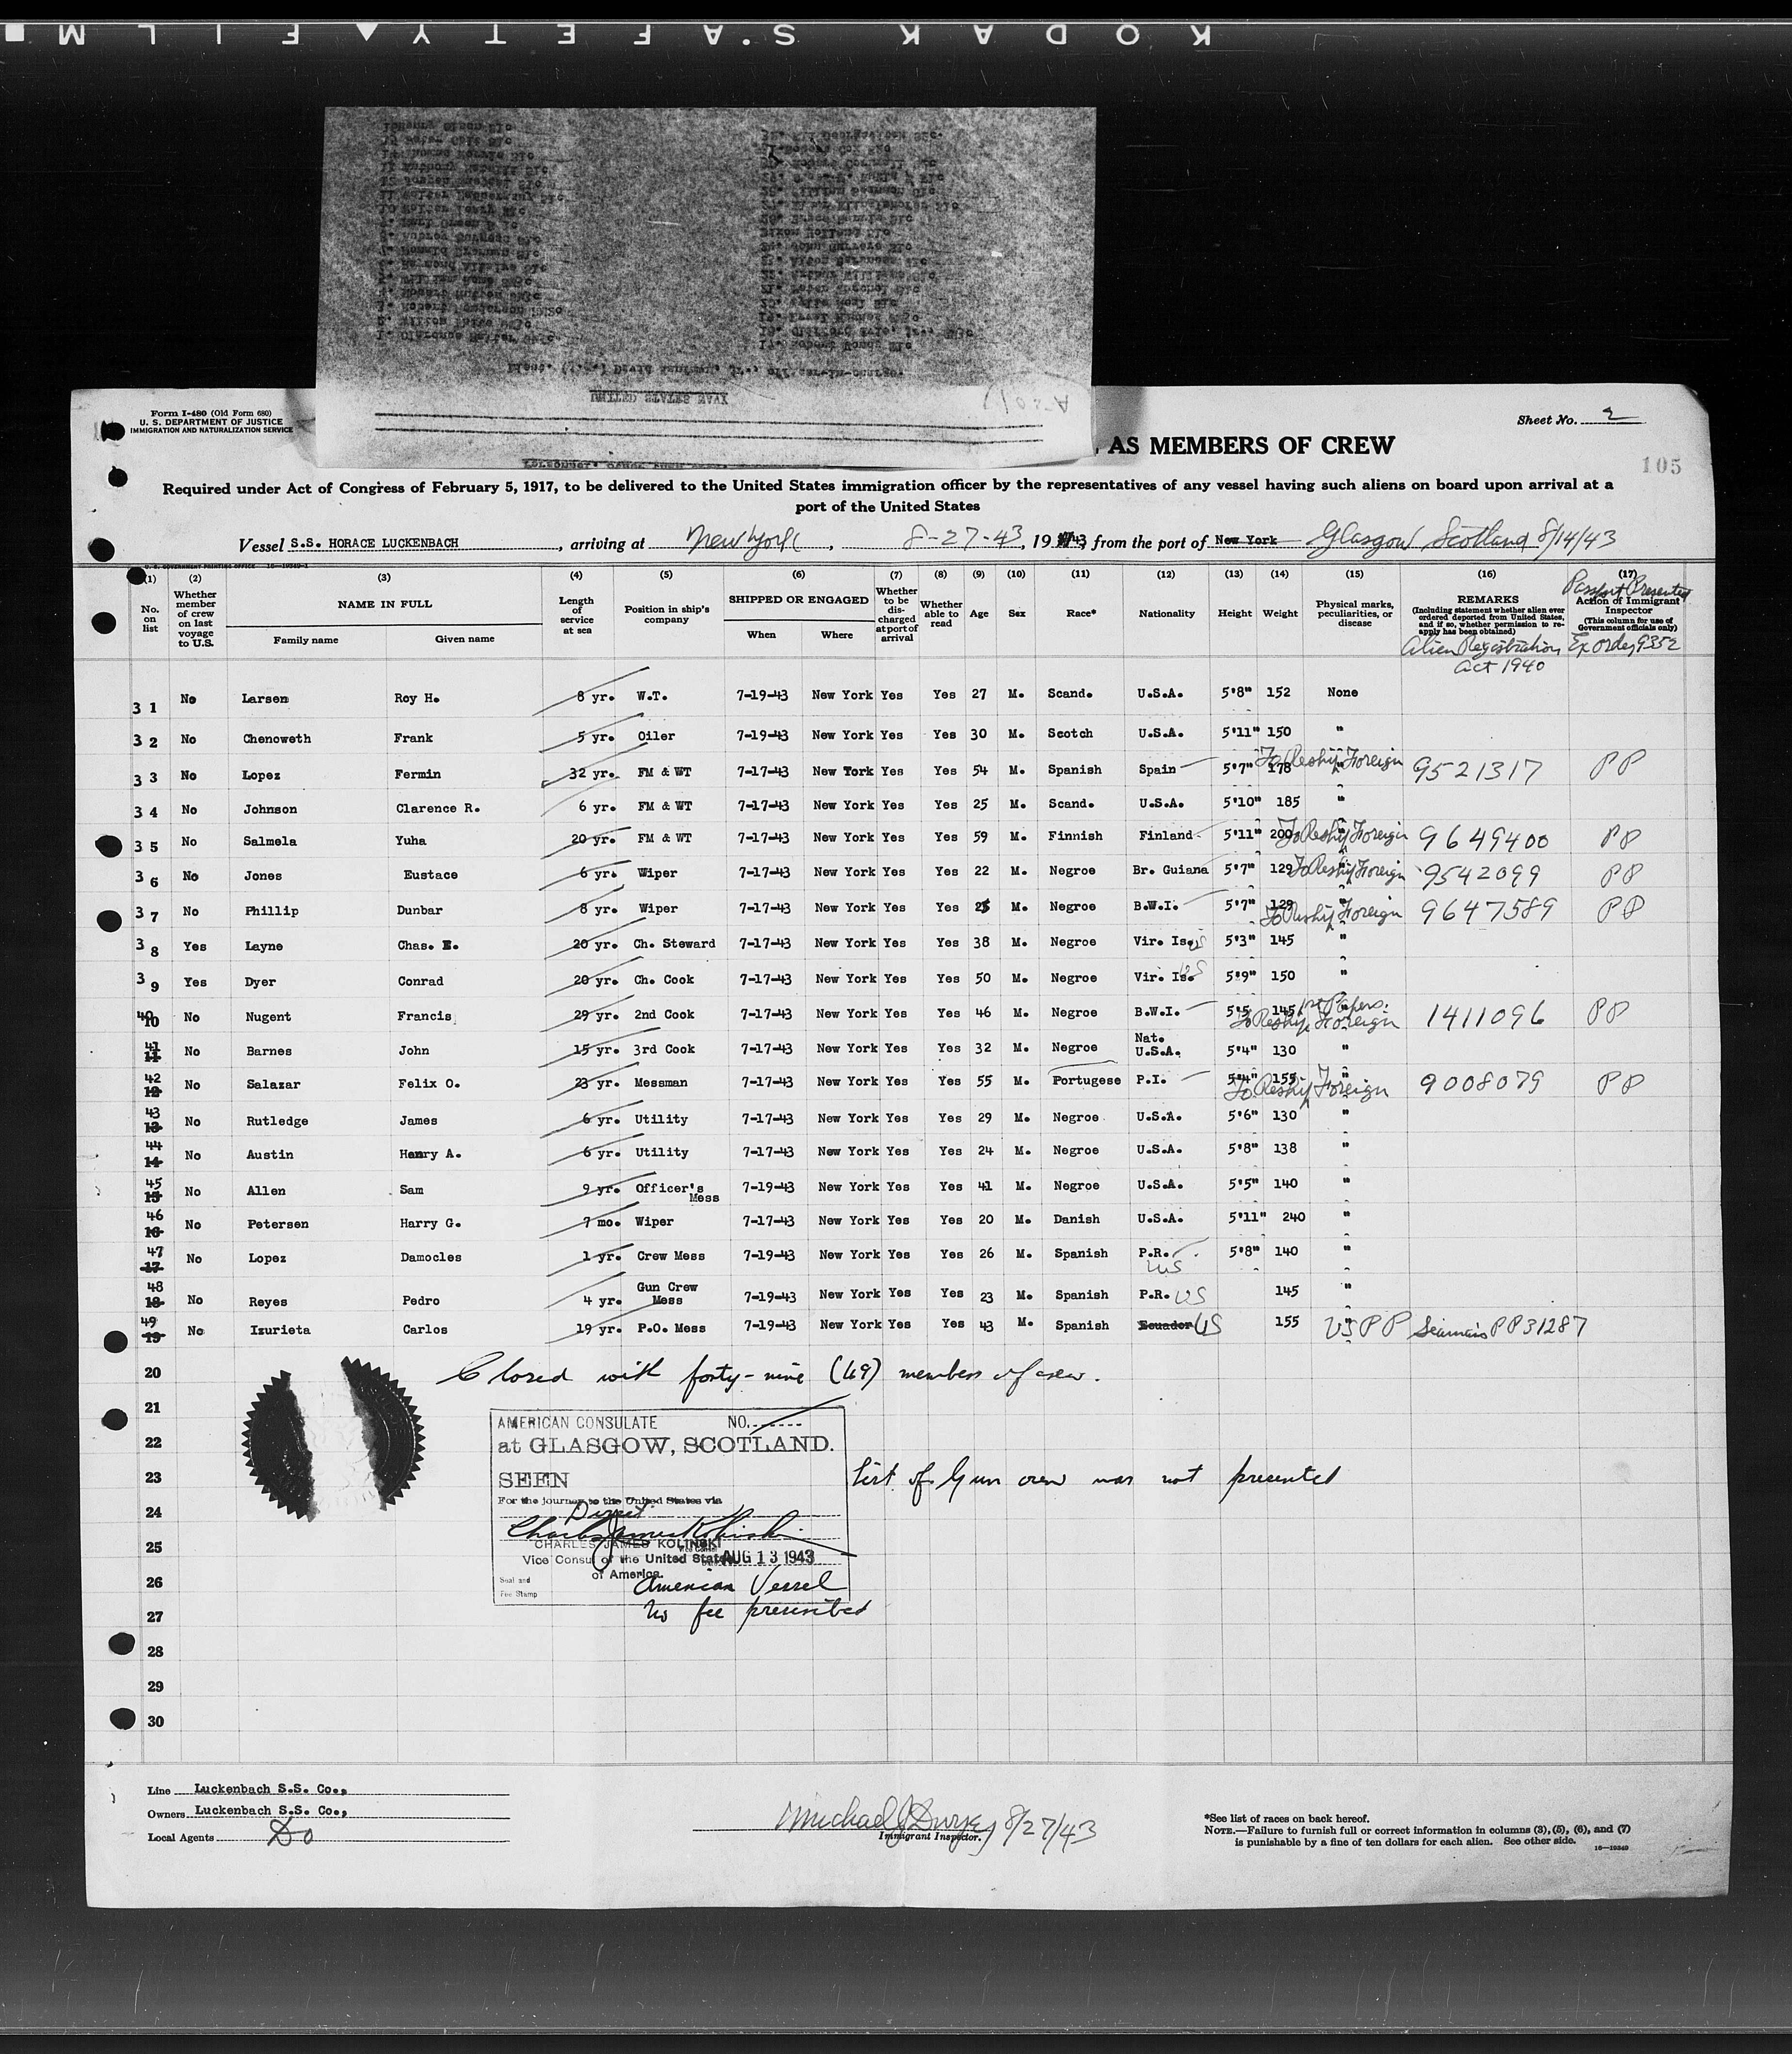 KODAK SAFETY FILM
UNITED STATES NAVY
Form I-480 (Old Form 680)
U. S. DEPARTMENT OF JUSTICE
IMMIGRATION AND NATURALIZATION SERVICE
Sheet No. 2
AS MEMBERS OF CREW
105
Required under Act of Congress of February 5, 1917, to be delivered to the United States immigration officer by the representatives of any vessel having such aliens on board upon arrival at a
port of the United States
Vessel S.S. HORACE LUCKENBACH, arriving at New York, 8-27-43, 1943, from the port of New York Glasgow Scotland 8/14/43
U. S. GOVERNMENT PRINTING OFFICE 16-19349-1
(1) (2) (3) (4) (5) (6) (7) (8) (9) (10) (11) (12) (13) (14) (15) (16) (17)
No. on list
Whether member of crew on last voyage to U.S.
NAME IN FULL
Family name Given name
Length of service at sea
Position in ship's company
SHIPPED OR ENGAGED
When Where
Whether to be discharged at port of arrival
Whether able to read
Age
Sex
Race*
Nationality
Height
Weight
Physical marks, peculiarities, or disease
REMARKS
(Including statement whether alien ever ordered deported from United States, and if so, whether permission to reapply has been obtained)
Alien Registration Act 1940
Passport Presented
Action of Immigrant Inspector
(This column for use of Government officials only)
Ex order 9352
31 No Larsen Roy H. 8 yr. W.T. 7-19-43 New York Yes Yes 27 M. Scand. U.S.A. 5'8" 152 None
32 No Chenoweth Frank 5 yr. Oiler 7-19-43 New York Yes Yes 30 M. Scotch U.S.A. 5'11" 150 "
33 No Lopez Fermin 32 yr. FM & WT 7-17-43 New York Yes Yes 54 M. Spanish Spain 5'7" 178 " To Reship Foreign 9521317 PP
34 No Johnson Clarence R. 6 yr. FM & WT 7-17-43 New York Yes Yes 25 M. Scand. U.S.A. 5'10" 185 "
35 No Salmela Yuha 20 yr. FM & WT 7-17-43 New York Yes Yes 59 M. Finnish Finland 5'11" 200 " To Reship Foreign 9649400 PP
36 No Jones Eustace 6 yr. Wiper 7-17-43 New York Yes Yes 22 M. Negroe Br. Guiana 5'7" 129 " To Reship Foreign 9542099 PP
37 No Phillip Dunbar 8 yr. Wiper 7-17-43 New York Yes Yes 25 M. Negroe B.W.I. 5'7" 129 To Reship Foreign 9647589 PP
38 Yes Layne Chas. E. 20 yr. Ch. Steward 7-17-43 New York Yes Yes 38 M. Negroe Vir. Is. US 5'3" 145 "
39 Yes Dyer Conrad 20 yr. Ch. Cook 7-17-43 New York Yes Yes 50 M. Negroe Vir. Is. US 5'9" 150 "
40 10 No Nugent Francis 29 yr. 2nd Cook 7-17-43 New York Yes Yes 46 M. Negroe B.W.I. 5'5 145 " 1st Papers. To Reship Foreign 1411096 PP
41 11 No Barnes John 15 yr. 3rd Cook 7-17-43 New York Yes Yes 32 M. Negroe Nat. U.S.A. 5'4" 130 "
42 12 No Salazar Felix O. 23 yr. Messman 7-17-43 New York Yes Yes 55 M. Portugese P.I. 5'4" 155 " To Reship Foreign 9008079 PP
43 13 No Rutledge James 6 yr. Utility 7-17-43 New York Yes Yes 29 M. Negroe U.S.A. 5'6" 130 "
44 14 No Austin Henry A. 6 yr. Utility 7-17-43 New York Yes Yes 24 M. Negroe U.S.A. 5'8" 138 "
45 15 No Allen Sam 9 yr. Officer's Mess 7-19-43 New York Yes Yes 41 M. Negroe U.S.A. 5'5" 140 "
46 16 No Petersen Harry G. 7 mo. Wiper 7-17-43 New York Yes Yes 20 M. Danish U.S.A. 5'11" 240 "
47 17 No Lopez Damocles 1 yr. Crew Mess 7-19-43 New York Yes Yes 26 M. Spanish P.R. US 5'8" 140 "
48 18 No Reyes Pedro 4 yr. Gun Crew Mess 7-19-43 New York Yes Yes 23 M. Spanish P.R. US 145 "
49 19 No Izurieta Carlos 19 yr. P.O. Mess 7-19-43 New York Yes Yes 43 M. Spanish Ecuador US 155 " US PP Seamans PP 31287
20 Closed with forty-nine (49) members of crew.
21
22
23 List of Gun crew was not presented
24
25
26
27
28
29
30
AMERICAN CONSULATE NO.
at GLASGOW, SCOTLAND.
SEEN
For the journey to the United States via
Direct
Charles James Kolinski
CHARLES JAMES KOLINSKI
Vice Consul of the United States AUG 13 1943
of America.
Seal and
Fee Stamp
American Vessel
No fee prescribed
Line Luckenbach S.S. Co.,
Owners Luckenbach S.S. Co.,
Local Agents Do
Michael J Dwyer 8/27/43
Immigrant Inspector.
*See list of races on back hereof.
NOTE.—Failure to furnish full or correct information in columns (3), (5), (6), and (7)
is punishable by a fine of ten dollars for each alien. See other side.
16-19349